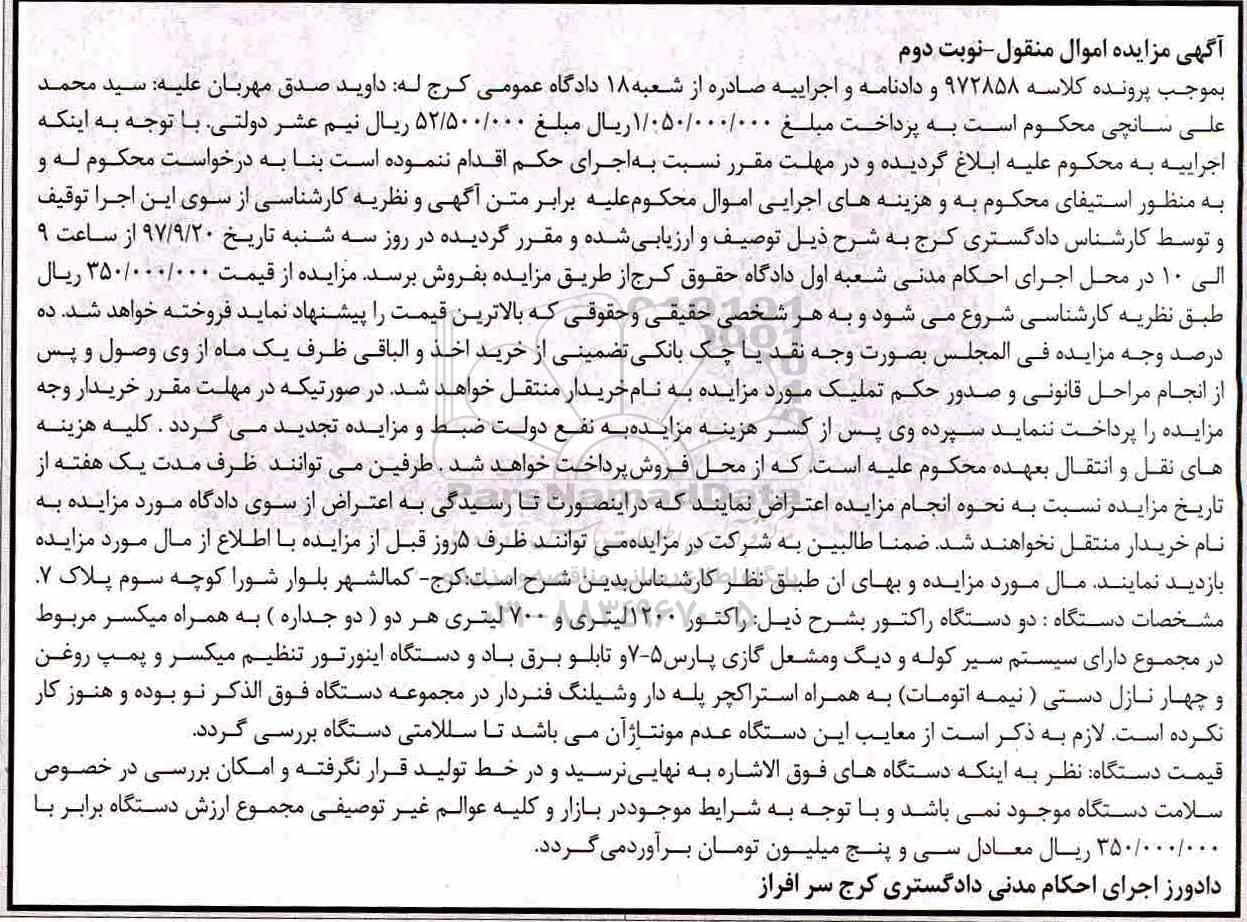 آگهی مزایده اموال منقول-نوبت دوم
بموجب پرونده کلاسه ۹۷۲۸۵۸ و دادنامه و اجراییه صادره از شعبه۱۸ دادگاه عمومی کرج له: داوید صدق مهربان علیه: سید محمد
علی سانچی محکوم است به پرداخت مبلغ ۱/۰۵۰/۰۰۰/۰۰۰ریال مبلغ ۵۲/۵۰۰/۰۰۰ ریال نیم عشر دولتی. با توجه به اینکه
اجراییه به محکوم علیه ابلاغ گردیده و در مهلت مقرر نسبت به‌اجرای حکم اقدام ننموده است بنا به درخواست محکوم له و
به منظور استیفای محکوم به و هزینه های اجرایی اموال محکوم‌علیه برابر متن آگهی و نظریه کارشناسی از سوی این اجرا توقیف
و توسط کارشناس دادگستری کرج به شرح ذیل توصیف و ارزیابی‌شده و مقرر گردیده در روز سه شنبه تاریخ ۹۷/۹/۲۰ از ساعت ۹
الی ۱۰ در محل اجرای احکام مدنی شعبه اول دادگاه حقوق کرج‌از طریق مزایده بفروش برسد. مزایده از قیمت ۳۵۰/۰۰۰/۰۰۰ ریال
طبق نظریه کارشناسی شروع می شود و به هر شخصی حقیقی وحقوقی که بالاترین قیمت را پیشنهاد نماید فروخته خواهد شد. ده
درصد وجه مزایده فی المجلس بصورت وجه نقد یا چک بانکی‌تضمینی از خرید اخذ و الباقی ظرف یک ماه از وی وصول و پس
از انجام مراحل قانونی و صدور حکم تملیک مورد مزایده به نام‌خریدار منتقل خواهد شد. در صورتیکه در مهلت مقرر خریدار وجه
مزایده را پرداخت ننماید سپرده وی پس از کسر هزینه مزایده‌به نفع دولت ضبط و مزایده تجدید می گردد . کلیه هزینه
های نقل و انتقال بعهده محکوم علیه است. که از محل فروش‌پرداخت خواهد شد . طرفین می توانند ظرف مدت یک هفته از
تاریخ مزایده نسبت به نحوه انجام مزایده اعتراض نمایند که دراینصورت تا رسیدگی به اعتراض از سوی دادگاه مورد مزایده به
نام خریدار منتقل نخواهند شد. ضمنا طالبین به شرکت در مزایده‌می توانند ظرف ۵روز قبل از مزایده با اطلاع از مال مورد مزایده
بازدید نمایند. مال مورد مزایده و بهای ان طبق نظر کارشناس‌بدین شرح است:کرج- کمالشهر بلوار شورا کوچه سوم پلاک ۷.
مشخصات دستگاه : دو دستگاه راکتور بشرح ذیل: راکتور ۱۲۰۰لیتری و ۷۰۰ لیتری هر دو ( دو جداره ) به همراه میکسر مربوط
در مجموع دارای سیستم سیر کوله و دیگ ومشعل گازی پارس۵-۷و تابلو برق باد و دستگاه اینورتور تنظیم میکسر و پمپ روغن
و چهار نازل دستی ( نیمه اتومات) به همراه استراکچر پله دار وشیلنگ فنردار در مجموعه دستگاه فوق الذکر نو بوده و هنوز کار
نکرده است. لازم به ذکر است از معایب این دستگاه عدم مونتاژآن می باشد تا سللامتی دستگاه بررسی گردد.
قیمت دستگاه: نظر به اینکه دستگاه های فوق الاشاره به نهایی‌نرسید و در خط تولید قرار نگرفته و امکان بررسی در خصوص
سلامت دستگاه موجود نمی باشد و با توجه به شرایط موجوددر بازار و کلیه عوالم غیر توصیفی مجموع ارزش دستگاه برابر با
۳۵۰/۰۰۰/۰۰۰ ریال معادل سی و پنج میلیون تومان برآوردمی‌گردد.
دادورز اجرای احکام مدنی دادگستری کرج سر افراز
ParsNamadData